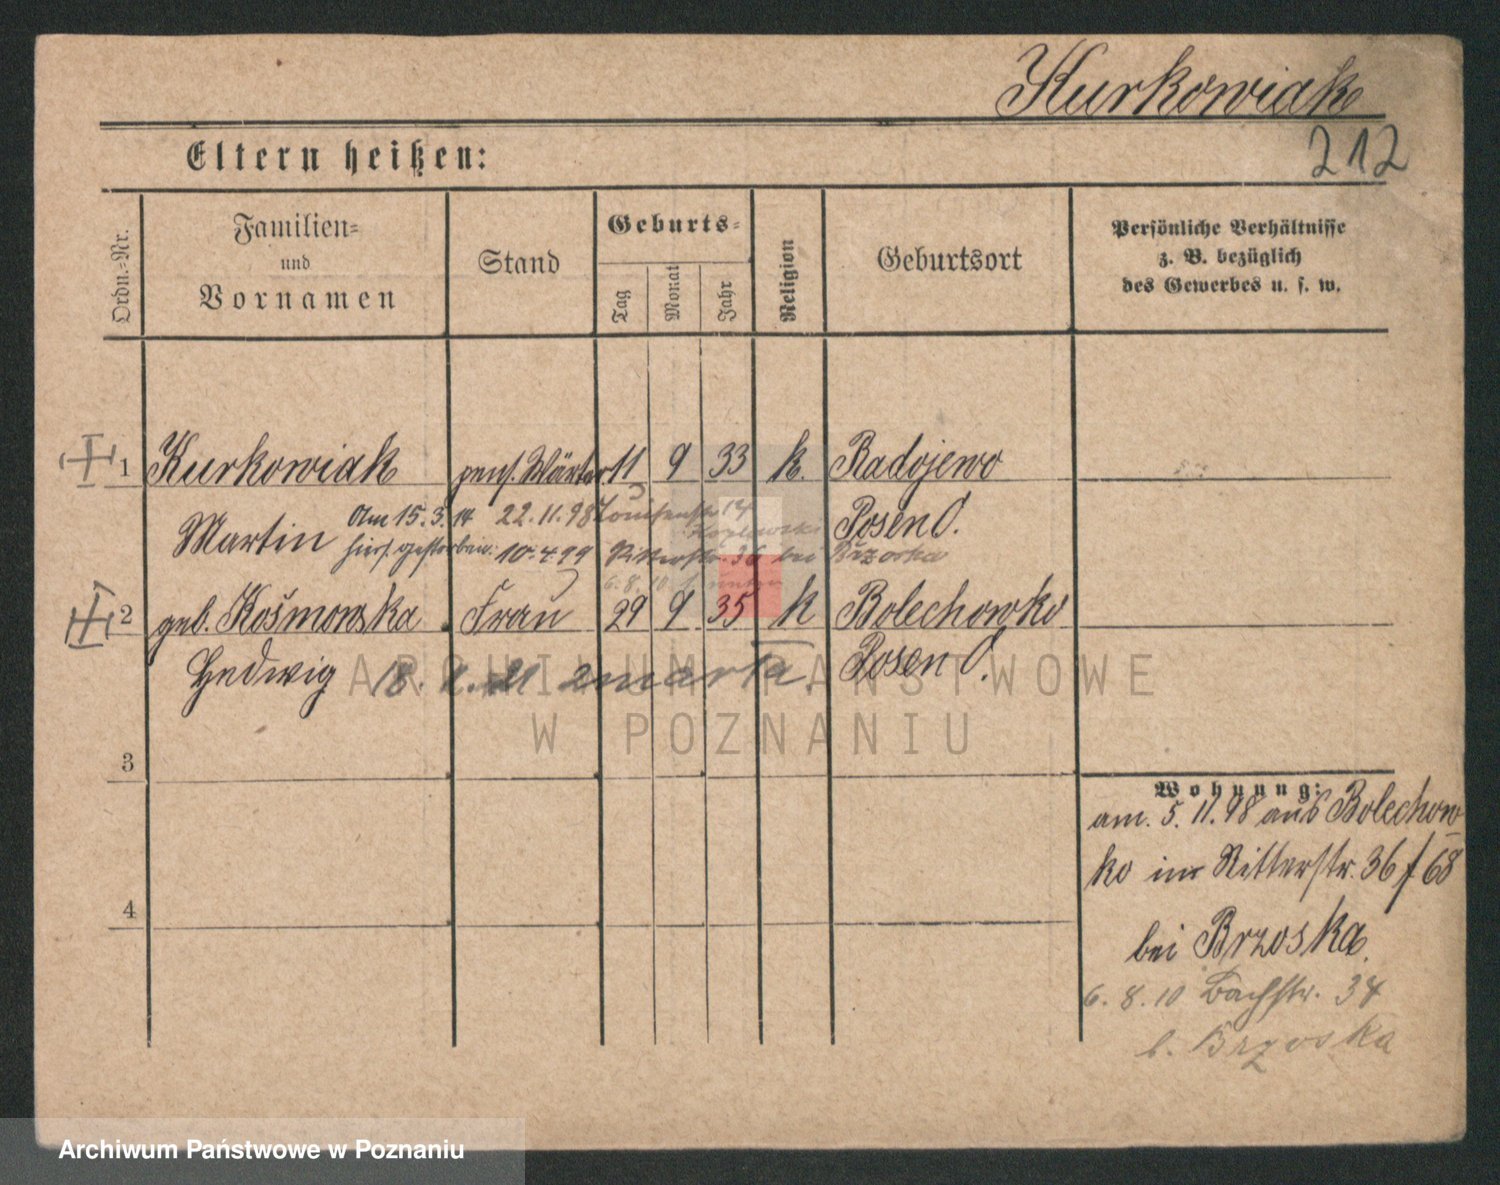 Kurkowiak
212
Eltern heißen:
Ordn.-Nr.
Familien-
und
Vornamen
Stand
Geburts-
Tag
Monat
Jahr
Religion
Geburtsort
Persönliche Verhältnisse
z. B. bezüglich
des Gewerbes u. s. w.
1 Kurkowiak pens. Wärter 11 9 33 k. Radojewo
Martin Am 15.3.14 22.11.98 Louisenstr 14 Posen O.
hier gestorben. 10.4.99 Ritterstr. 36 bei Brzoska
6.8.10
2 geb. Košmowska Frau 29 9 35 k Bolechowko
Hedwig zmarła. Posen O.
3
Wohnung:
am. 5. 11. 98 aus Bolechow
ko im Ritterstr. 36 / 68
4
bei Brzoska.
6. 8. 10 Bachstr. 34
b. Brzoska
ARCHIWUM PAŃSTWOWE
W POZNANIU
Archiwum Państwowe w Poznaniu